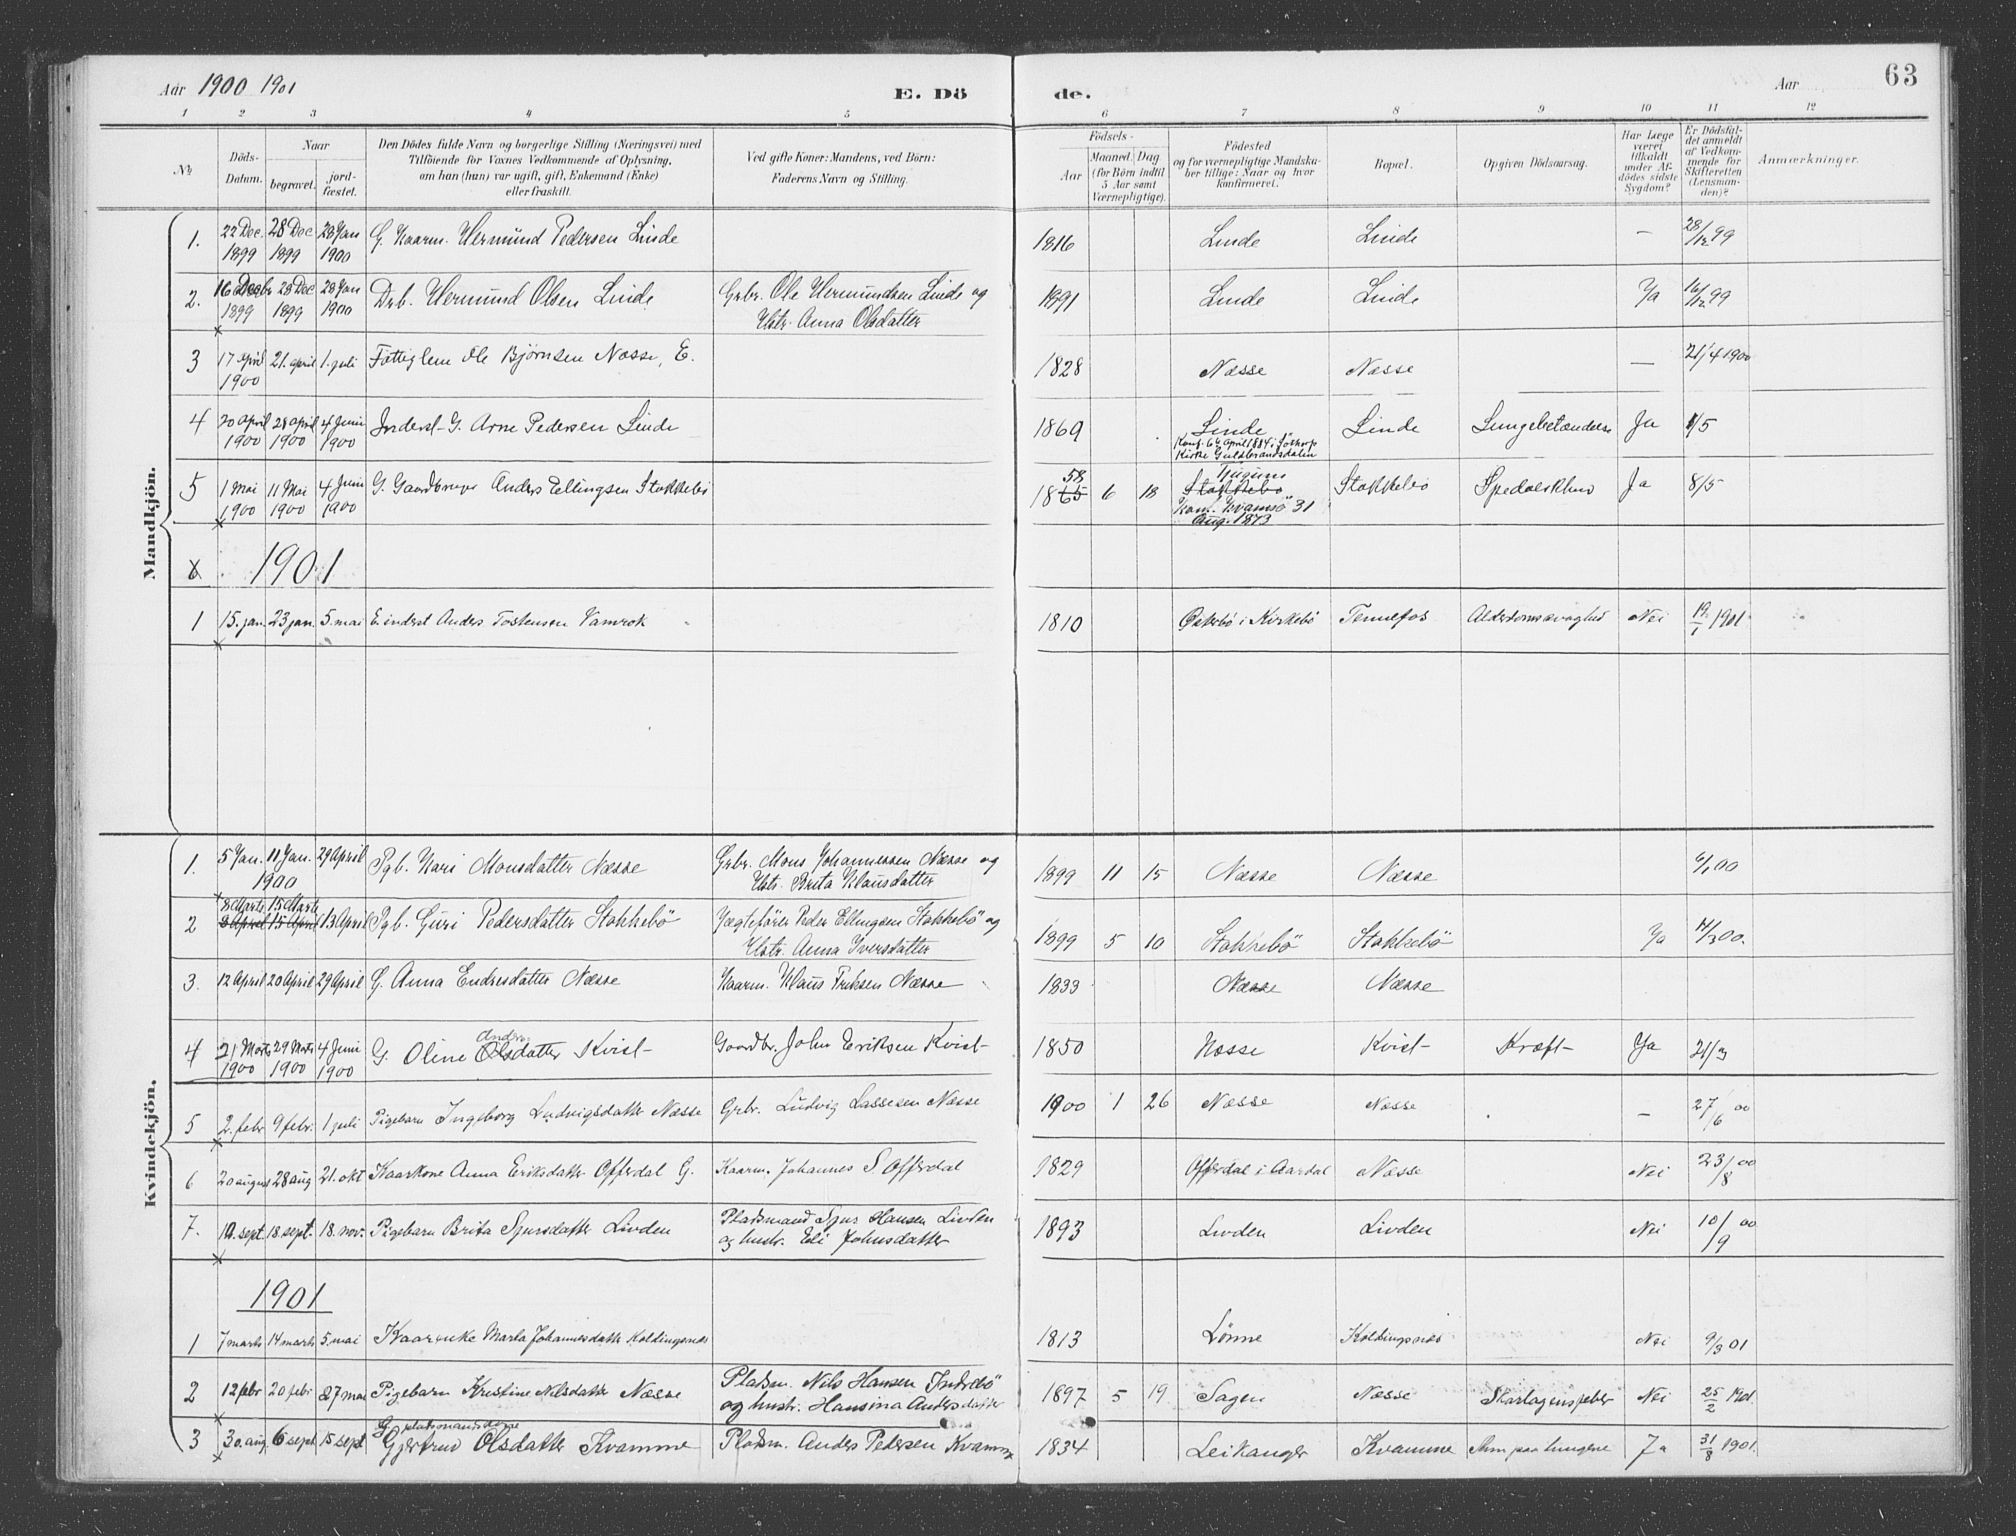 Aar 1900 1901 E. Dö de. Aar 63
1 2 3 4 5 6 7 8 9 10 11 12
№ Döds-Datum. Naar begravet. jord-fæstet. Den Dödes fulde Navn og borgerlige Stilling (Næringsvei) med Tilföiende for Voxnes Vedkommende af Oplysning, om han (hun) var ugift, gift, Enkemand (Enke) eller fraskilt. Ved gifte Koner: Mandens, ved Börn: Faderens Navn og Stilling. Födsels- Aar Maaned. Dag (for Börn indtil 5 Aar samt Værnepligtige). Födested og for værnepligtige Mandskaber tillige: Naar og hvor konfirmeret. Bopæl. Opgiven Dödsaarsag. Har Læge været tilkaldt under Afdödes sidste Sygdom? Er Dödsfaldet anmeldt af Vedkommende for Skifteretten (Lensmanden)? Anmærkninger.
Mandkjön.
1. 22 Dec. 1899 28 Dec 1899 28 Jan 1900 G. Kaarm. Hermund Pedersen Linde 1816 Linde Linde — 28/12 99
2. 16 Decbr 1899 28 Dec 1899 28 Jan 1900 Drb. Hermund Olsen Linde Grbr. Ole Hermundsen Linde og
Hstr. Anna Olsdatter 1891 Linde Linde Ja 16/12 99
3 17 april 1900 21. april 1. juli Fattiglem Ole Björnsen Næsse, E. 1828 Næsse Næsse — 21/4 1900
4 20 April 1900 28 april 1900 4 Juni 1900 Inderst G. Arne Pedersen Linde 1869 Linde
Konf. 6 April 1884 i
Kirke Guldbrandsdalen Linde Lungebetændelse Ja 1/5
5 1 Mai 1900 11 Mai 1900 4 Juni 1900 G. Gaardbruger Anders Ellingsen Stokkebö 1865 58 6 18 Stokkebö
Konf. Kvamsö 31
Aug. 1873 Stokkebö Spedalskhed Ja 8/5
6 1901
1 15. jan. 23 jan. 5. mai E. inderst Anders Tostensen Vamrok 1810 Österbö i Kirkebö Tennefos Alderdomssvaghed Nei 19/1 1901.
Kvindekjön.
1. 5 Jan. 11 Jan. 29 April
1900 Pgb. Kari Monsdatter Næsse Grbr. Mons Johannessen Næsse og
Hstr. Brita Klausdatter 1899 11 15 Næsse Næsse 6/1 00
2 8 Marts 15 Marts
8 April 15 April 13 April Pgb. Guri Pedersdatter Stokkebö Jægtefører Peder Ellingsen Stokkebö og
Hstr. Anna Iversdatter 1899 5 10 Stokkebö Stokkebö Ja 14/3 00.
3. 12 April 20 April 29 April G. Anna Endresdatter Næsse Kaarm. Klaus Eriksen Næsse 1833 Næsse Næsse
4 21 Marts 1900 29 Marts 1900 4 Juni 1900 G. Oline Olsdatter Anders Kvist Gaardbr. John Eriksen Kvist 1850 Næsse Kvist Kræft Ja 21/3
5 2. febr 9 febr. 1 juli Pigebarn Ingeborg Ludvigsdatter Næsse Grbr. Ludvig Lassesen Næsse 1900 1 26 Næsse Næsse — 27/6 00
6 20 august 28 aug 21. okt Kaarkone Anna Eriksdatter Offerdal G. Kaarm. Johannes S. Offerdal 1829 Offerdal i Aardal Næsse Nei 23/8 00
7. 10. sept. 18. sept. 18. nov. Pigebarn Brita Sjursdatter Livden Pladsmand Sjur Hansen Livden
og hustr. Eli Johnsdatter 1893 Livden Livden Nei 10/9 00
1901
1 7 marts 14 marts 5. mai Kaarenke Marta Johannesdatter Koldingsnæs 1813 Lönne Koldingsnæs Nei 9/3 01
2 12 febr 20 febr 27 mai Pigebarn Kristine Nilsdatter Næsse Pladsm. Nils Hansen Indrebö
og hustr. Hansina Andersdatter 1897 5 19 Sagen Næsse Skarlagensfeber Nei 25/2 1901.
3 30. aug. 6 sept 15 sept G. pladsmandskone
Gjertrud Olsdatter Kvamme Pladsm. Anders Pedersen Kvamme 1834 Leikanger Kvamme paa lungene Ja 31/8 1901.